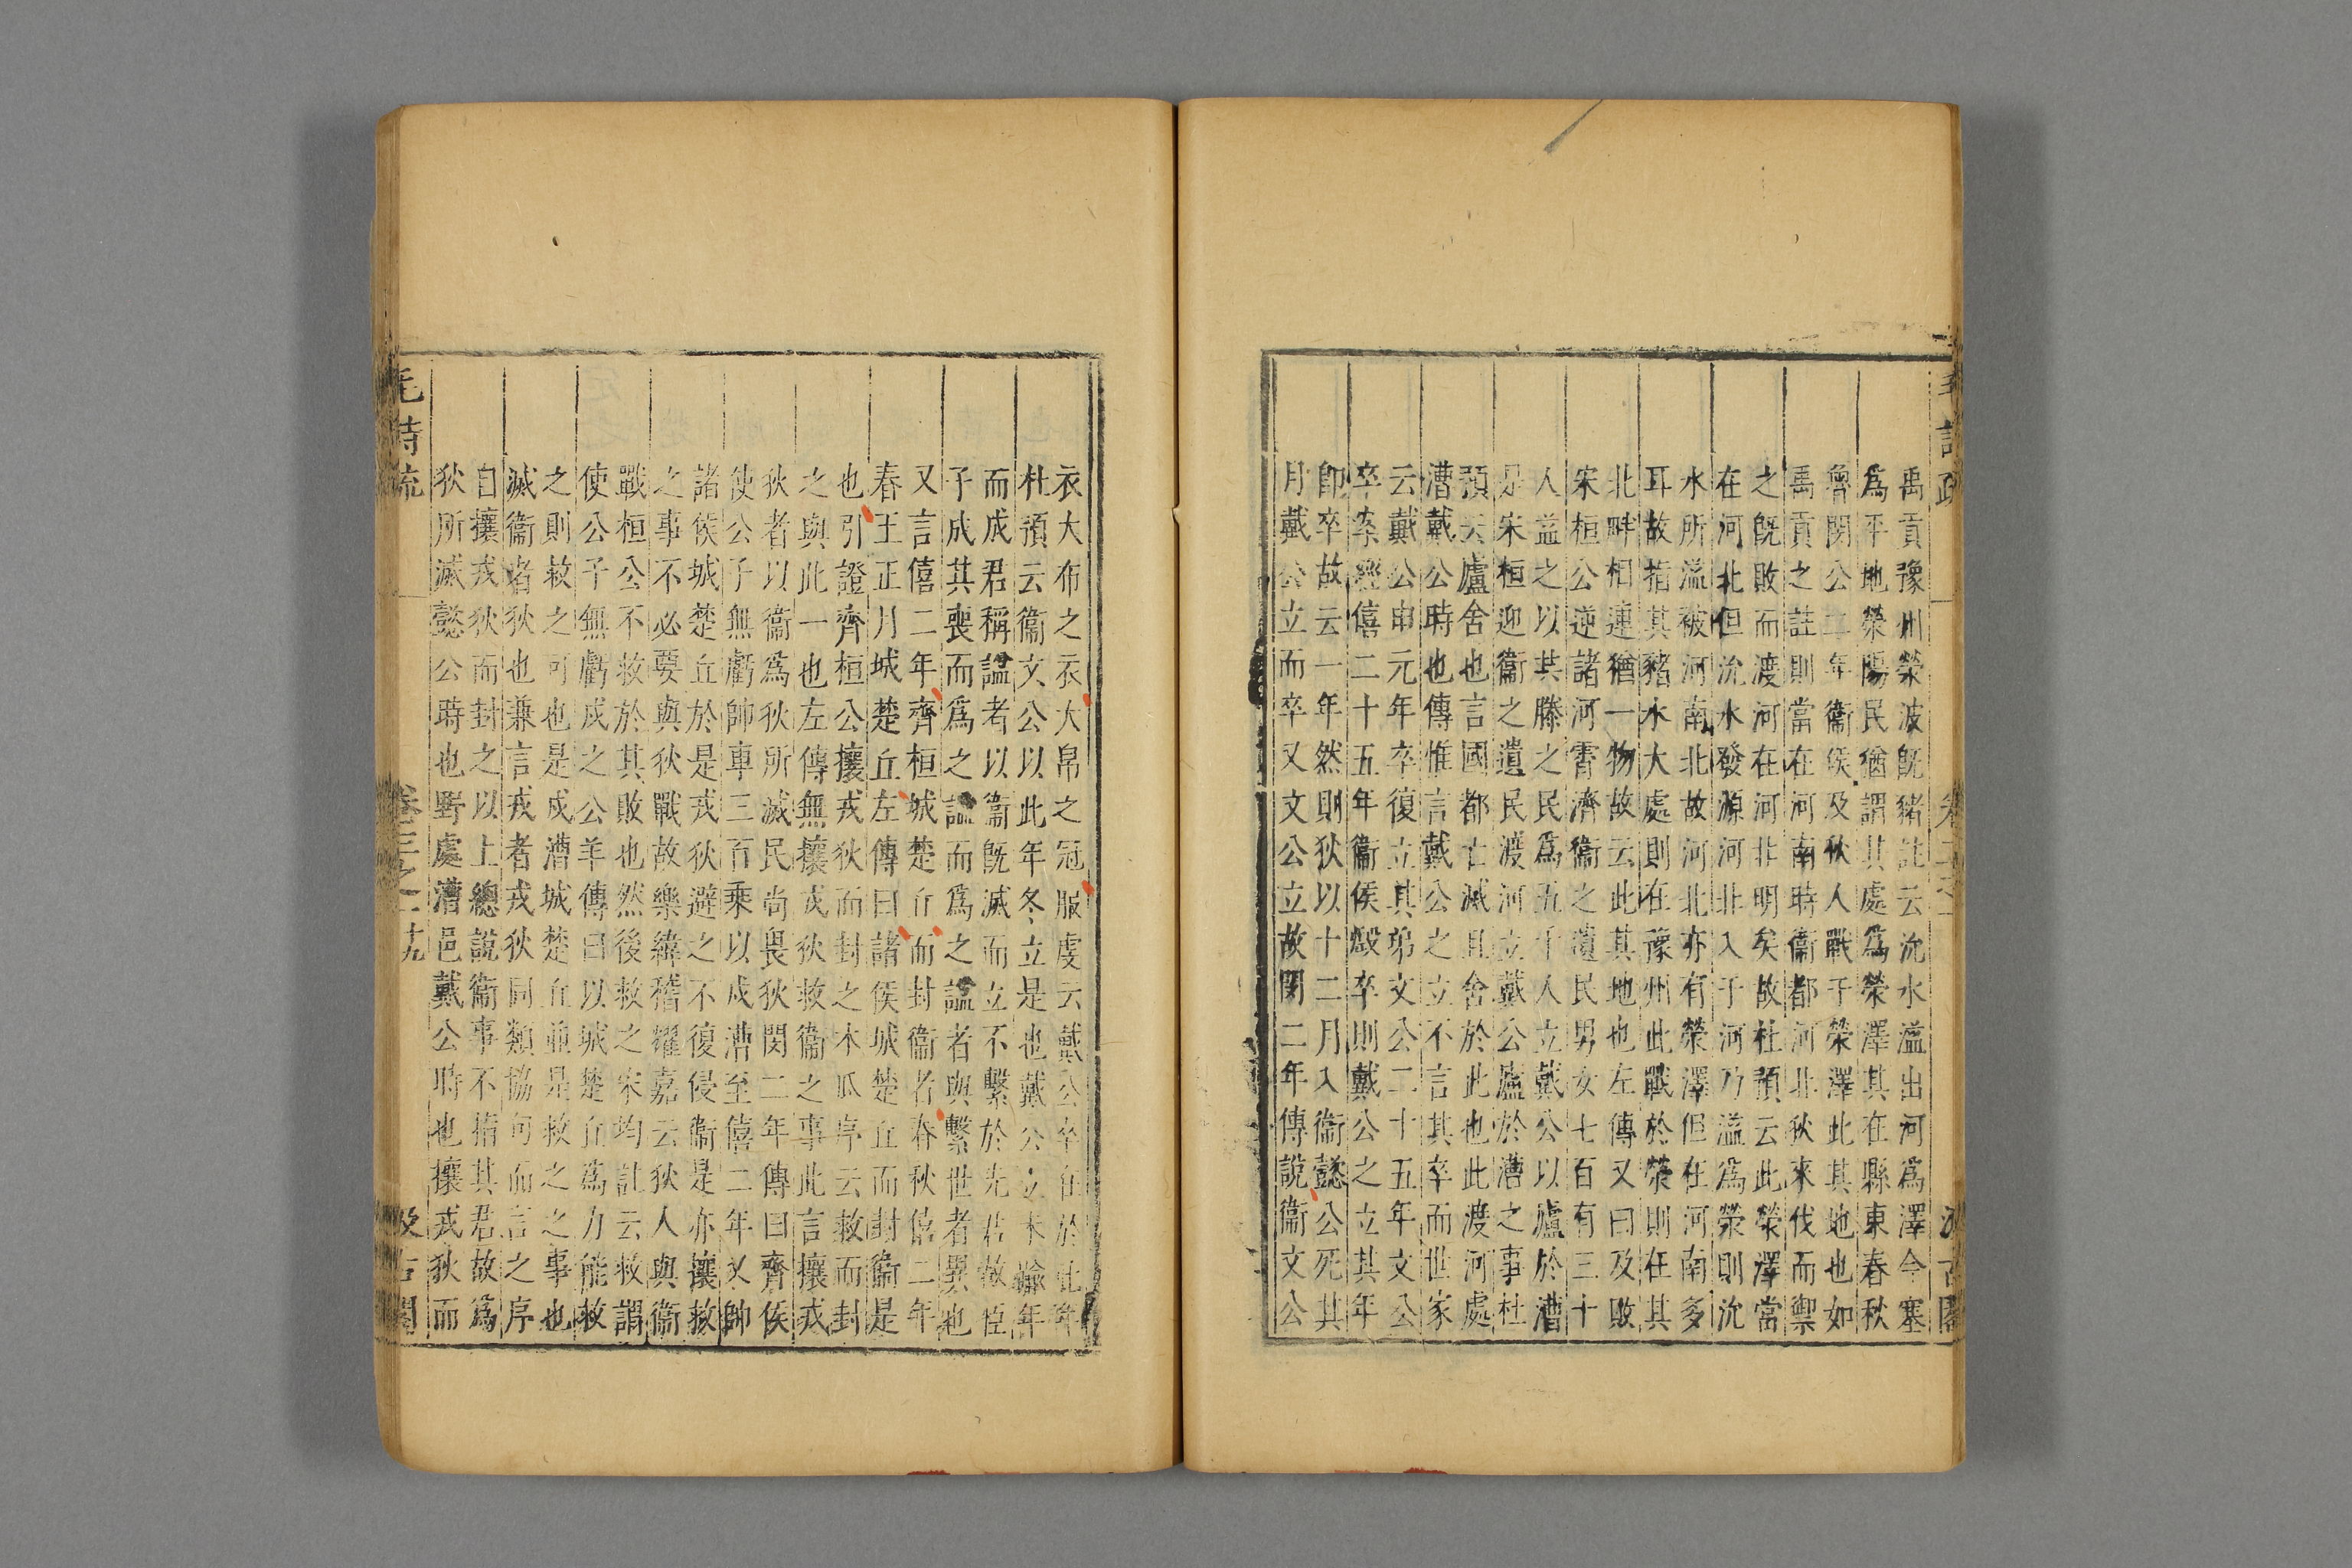 禹貢豫州滎波既豬註云沇水溢出河爲澤今塞
爲平地滎陽民猶謂其處爲滎澤其在縣東春秋
魯閔公二年衞侯及狄人戰于滎澤此其地也如
禹貢之註則當在河南時衞都河北狄來伐而禦
之既敗而渡河在河北明矣故杜預云此滎澤當
在河北但沇水發源河北入于河乃溢爲滎則沇
水所溢被河南北故河北亦有滎澤但在河南多
耳故指其豬水大處則在豫州此戰於滎則在其
北畔相連猶一物故云此其地也左傳又曰及敗
宋桓公逆諸河霄濟衞之遺民男女七百有三十
人益之以共滕之民爲五千人立戴公以廬於漕
是宋桓迎衞之遺民渡河立戴公廬於漕之事杜
預云廬舍也言國都亡滅且舍於此也此渡河處
漕戴公時也傳惟言戴公之立不言其卒而世家
云戴公申元年卒復立其弟文公二十五年文公
卒案經僖二十五年衞侯燬卒則戴公之立其年
卽卒故云一年然則狄以十二月入衞懿公死其
月戴公立而卒又文公立故閔二年傳說衞文公
衣大布之衣大帛之冠服虔云戴公卒在於此年
杜預云衞文公以此年冬立是也戴公立未踰年
而成君稱謚者以衞既滅而立不繫於先君故臣
子成其喪而爲之謚而爲之謚者與繫世者異也
又言僖二年齊桓城楚丘而封衞者春秋僖二年
春王正月城楚丘左傳曰諸侯城楚丘而封衞是
也引證齊桓公攘戎狄而封之木瓜序云救而封
之與此一也左傳無攘戎狄救衞之事此言攘戎
狄者以衞爲狄所滅民尚畏狄閔二年傳曰齊侯
使公子無虧帥車三百乘以戍漕至僖二年又帥
諸侯城楚丘於是戎狄避之不復侵衞是亦攘救
之事不必要與狄戰故樂緯稽耀嘉云狄人與衞
戰桓公不救於其敗也然後救之宋均註云救謂
使公子無虧戍之公羊傳曰以城楚丘爲力能救
之則救之可也是戍漕城楚丘並是救之之事也
滅衞者狄也兼言戎者戎狄同類協句而言之序
自攘戎狄而封之以上總說衞事不指其君故爲
狄所滅懿公時也野處漕邑戴公時也攘戎狄而
毛詩疏　卷三之一　十九　汲古閣